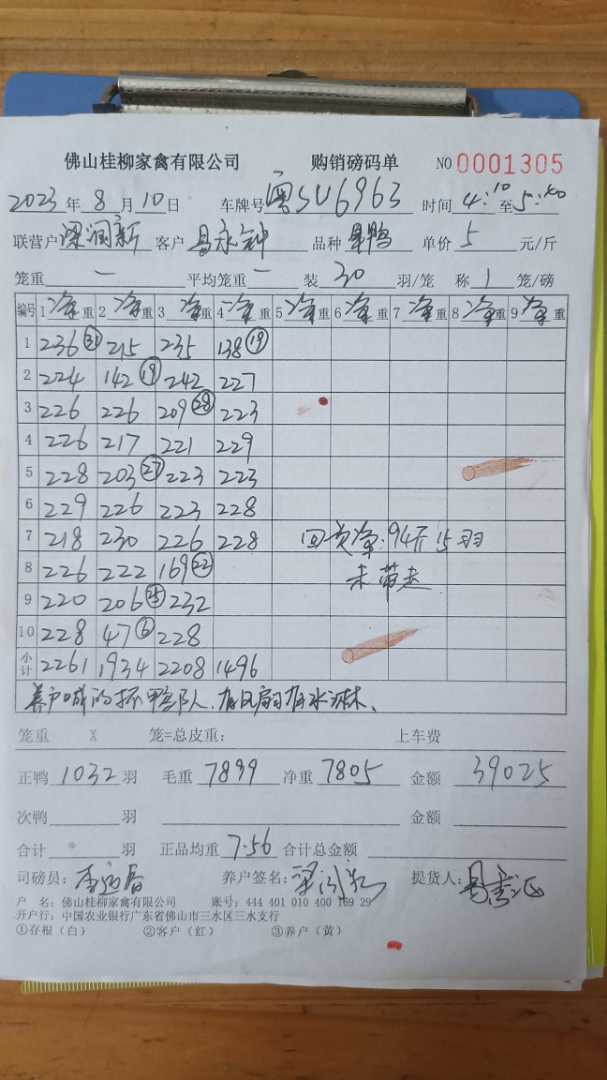 佛山桂柳家禽有限公司 购销磅码单 NO 0001305
2023年8月10日 车牌号 粤SU6963 时间 4:10至5:40
联营户 梁润新 客户 易永钟 品种 单价 5 元/斤
笼重 一 平均笼重 一 装 30 羽/笼 称 1 笼/磅
编号 1 净重 2 净重 3 净重 4 净重 5 净重 6 净重 7 净重 8 净重 9 净重
1 236 ㉛ 215 235 138 ⑲
2 224 142 ⑲ 242 227
3 226 226 209 ㉘ 223
4 226 217 221 229
5 228 203 ㉗ 223 223
6 229 226 223 228
7 218 230 226 228 回货净:94斤15羽
8 226 222 169 ㉒ 未带走
9 220 206 ㉕ 232
10 228 47 ⑥ 228
小计 2261 1934 2208 1496
养户喊的抓鸭队人,有风扇有水淋、
笼重 X 笼=总皮重: 上车费
正鸭 1032 羽 毛重 7899 净重 7805 金额 39025
次鸭 羽 金额
合计 羽 正品均重 7.56 合计总金额
司磅员: 养户签名: 提货人:
户 名: 佛山桂柳家禽有限公司 账号: 444 401 010 400 169 29
开户行: 中国农业银行广东省佛山市三水区三水支行
①存根(白) ②客户(红) ③养户(黄)